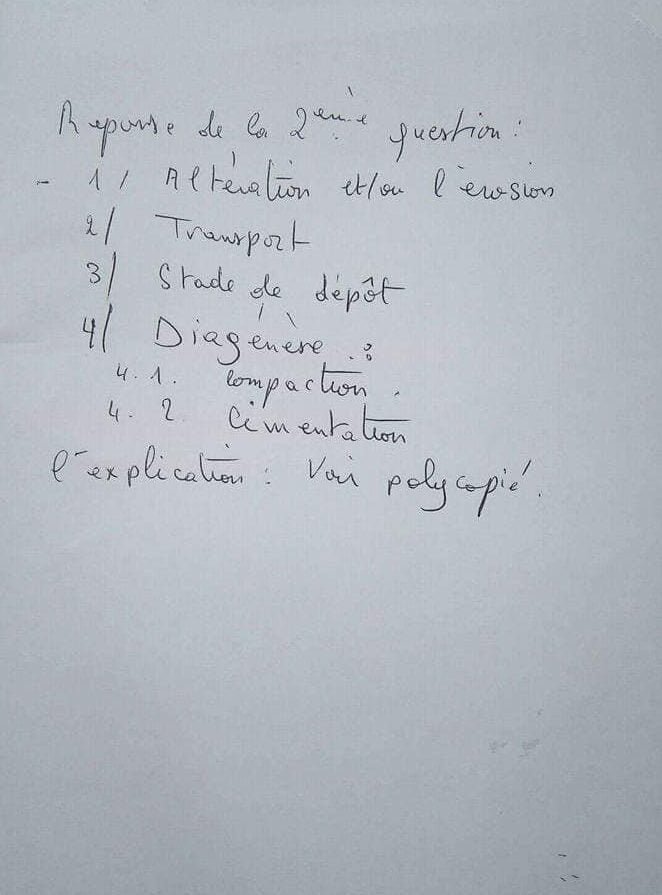 Reponse de la 2ème question :
- 1/ Altération et/ou l'érosion
2/ Transport
3/ Stade de dépôt
4/ Diagénèse :
4.1. Compaction.
4.2. Cimentation
l'explication : Voir polycopié.